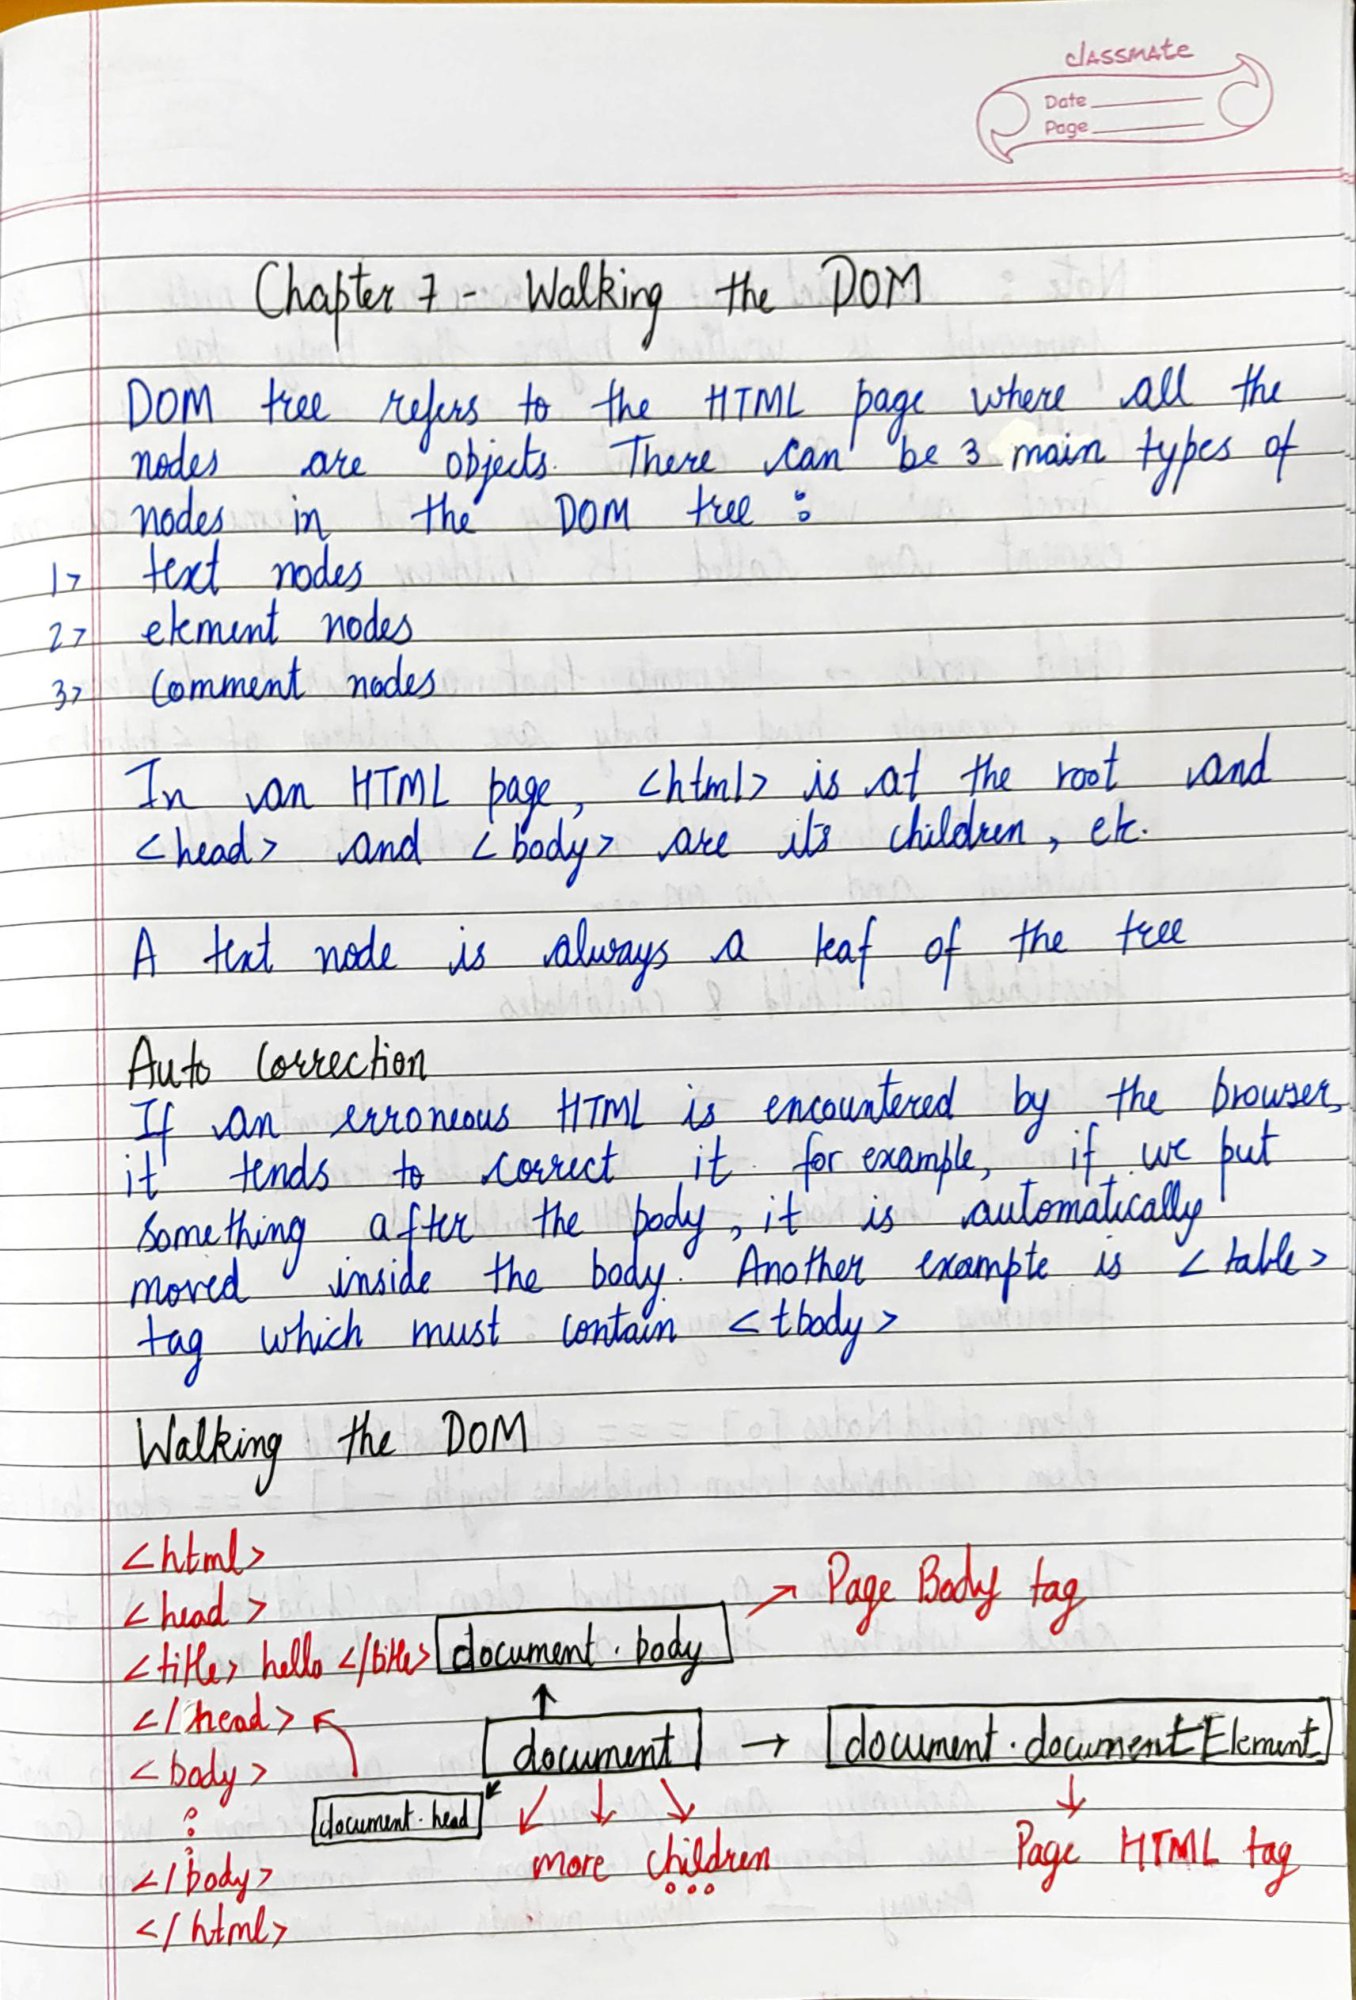 classmate
Date
Page
Chapter 7 - Walking the DOM
DOM tree refers to the HTML page where all the
nodes are objects. There can be 3 main types of
nodes in the DOM tree :
1> text nodes
2> element nodes
3> comment nodes
In an HTML page, <html> is at the root and
<head> and <body> are its children, etc.
A text node is always a leaf of the tree
Auto Correction
If an erroneous HTML is encountered by the browser,
it tends to correct it. for example, if we put
something after the body, it is automatically
moved inside the body. Another example is <table>
tag which must contain <tbody>
Walking the DOM
<html>
<head>
<title> hello </title>
</head>
<body>
</body>
</html>
document.body
Page Body tag
document
document.documentElement
document.head
more children
...
Page HTML tag